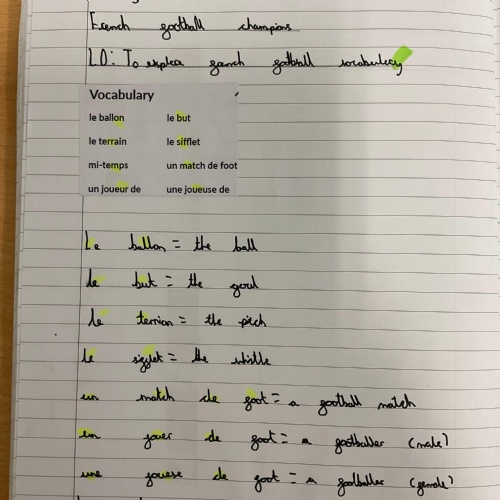 French football champions
LO: To explore french football vocabulary
Vocabulary
le ballon le but
le terrain le sifflet
mi-temps un match de foot
un joueur de une joueuse de
Le ballon = the ball
le but = the goal
le terrion = the pitch
le sifflet = the whistle
un match de foot = a football match
un jouer de foot = a footballer (male)
une jouese de foot = a footballer (female)